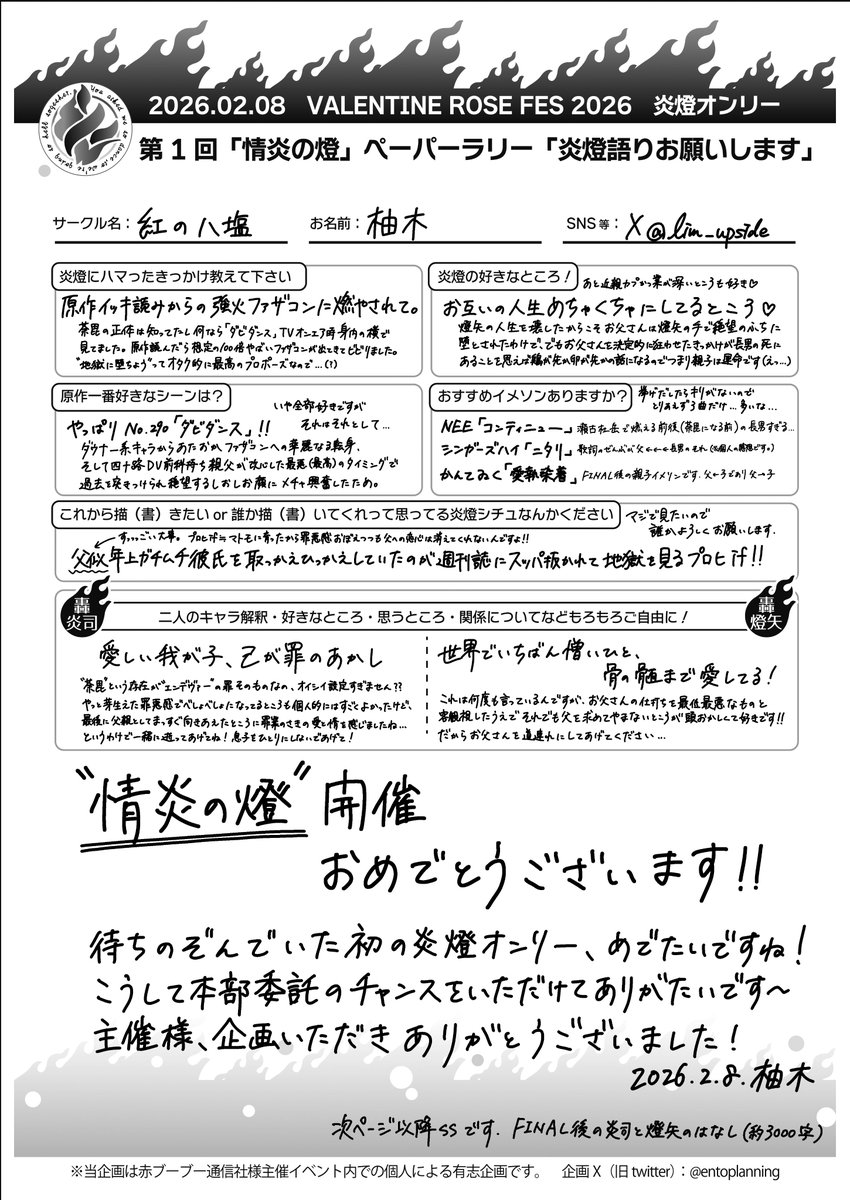 2026.02.08 VALENTINE ROSE FES 2026 炎燈オンリー
You asked me to dance, so we're going to hell together.
第1回「情炎の燈」ペーパーラリー「炎燈語りお願いします」
サークル名：紅の八塩
お名前：柚木
SNS等：X @lim_upside
炎燈にハマったきっかけ教えて下さい
原作イッキ読みからの強火ファザコンに燃やされて。
荼毘の正体は知ってたし何なら「ダビダンス」TVオンエア時身内の横で
見てました。原作読んだら想定の100倍やばいファザコンが出てきてビビりました。
"地獄に堕ちよう"ってオタク的に最高のプロポーズなので…(？)
炎燈の好きなところ！
あと近親カプかつ業が深いところも好き♡
お互いの人生めちゃくちゃにしてるところ♡
燈矢の人生を壊したからこそお父さんは燈矢の手で絶望のふちに
堕とされたわけで、でもお父さんを決定的に狂わせたきっかけが長男の死に
あることを思えば鶏が先か卵が先かの話になるのでつまり親子は運命です(えっ…)
原作一番好きなシーンは？
いや全部好きですが
それはそれとして…
やっぱり No.290「ダビダンス」!!
ダウナー系キャラからあたおかファザコンへの華麗なる転身、
そして四十路DV前科持ち親父が改心した最悪(最高)のタイミングで
過去を突きつけられ絶望するしおしお顔にメチャ興奮したため。
おすすめイメソンありますか？
挙げだしたらキリがないので
とりあえず3曲だけ…多いな…
NEE「コンティニュー」瀬古杜岳で燃える前後(荼毘になる前)の長男すぎる…
シンガーズハイ「ニタリ」歌詞のぜんぶが父←←←長男のそれ(※個人の感想です。)
かんてゐく「愛執染着」FINAL後の親子イメソンです。父←子であり父→子
これから描（書）きたい or 誰か描（書）いてくれって思ってる炎燈シチュなんかください
マジで見たいので
誰かよろしくお願いします。
すっっごい大事。プロヒif≒マトモに育ったから罪悪感おぼえつつも父への恋心は消えてくれない人ですよ!!
父似年上ガチムチ彼氏を取っかえひっかえしていたのが週刊誌にスッパ抜かれて地獄を見るプロヒif!!
轟炎司
二人のキャラ解釈・好きなところ・思うところ・関係についてなどもろもろご自由に！
轟燈矢
愛しい我が子、己が罪のあかし
"荼毘"という存在が"エンデヴァー"の罪そのものなの、オイシイ設定すぎません？？
やっと芽生えた罪悪感でべしょべしょになってるところも個人的にはすごくよかったけど、
最後に父親としてまっすぐ向きあえたところに罪業のさきの愛と情を感じましたね…
というわけで一緒に逝ってあげてね！息子をひとりにしないであげて！
世界でいちばん憎いひと、
骨の髄まで愛してる！
これは何度も言っているんですが、お父さんの仕打ちを最低最悪なものと
客観視したうえでそれでも父を求めてやまないところが頭おかしくて好きです!!
だからお父さんを道連れにしてあげてください…
"情炎の燈"開催
おめでとうございます!!
待ちのぞんでいた初の炎燈オンリー、めでたいですね！
こうして本部委託のチャンスをいただけてありがたいです〜
主催様、企画いただきありがとうございました！
2026.2.8.柚木
次ページ以降SSです。FINAL後の炎司と燈矢のはなし(約3000字)
※当企画は赤ブーブー通信社様主催イベント内での個人による有志企画です。 企画X（旧twitter）：@entoplanning